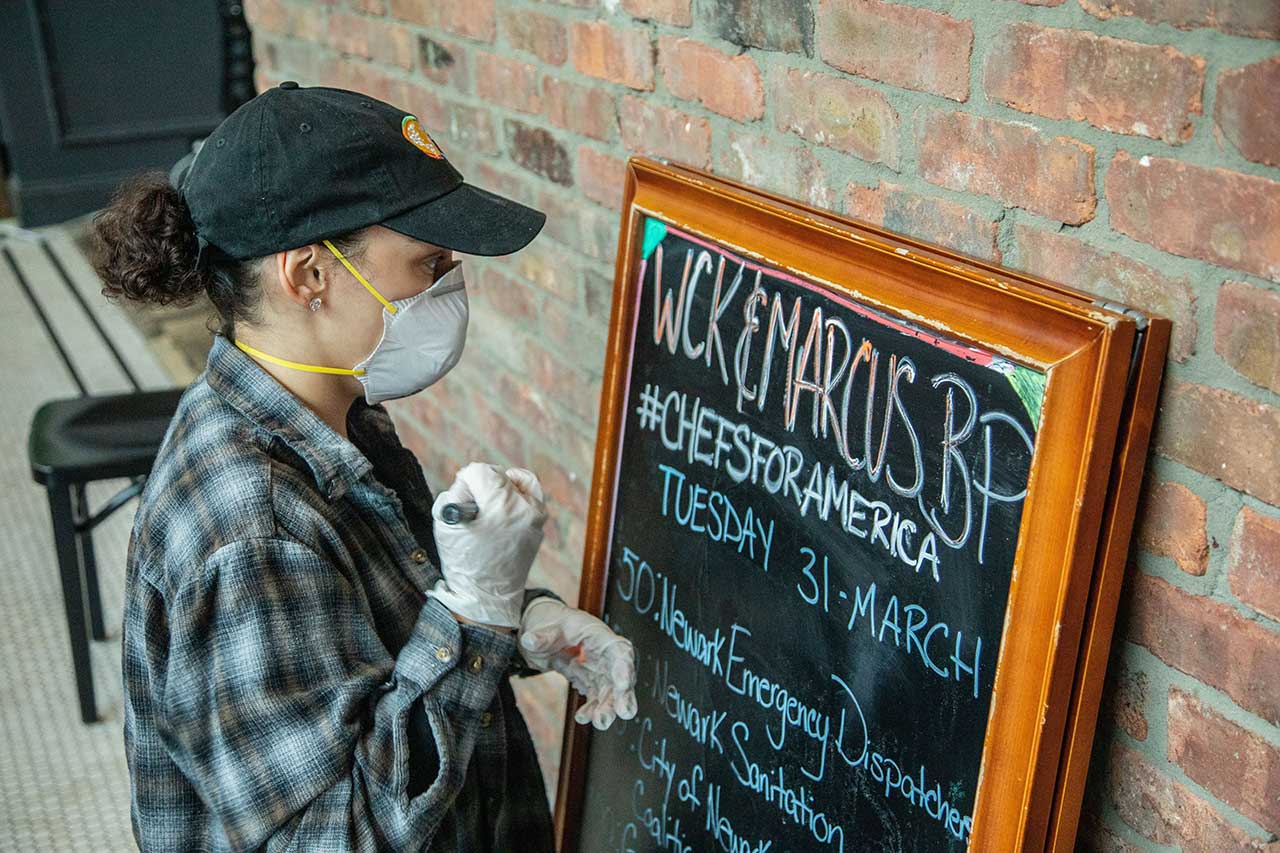 WCK & MARCUS BP
#CHEFSFORAMERICA
TUESDAY 31-MARCH
50: Newark Emergency Dispatchers
: Newark Sanitation
: City of Newark